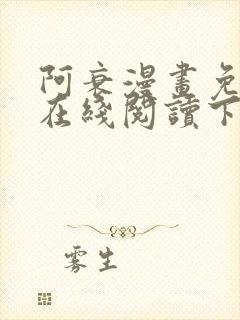 阿衰漫畫免
在綫閱讀下
雾生